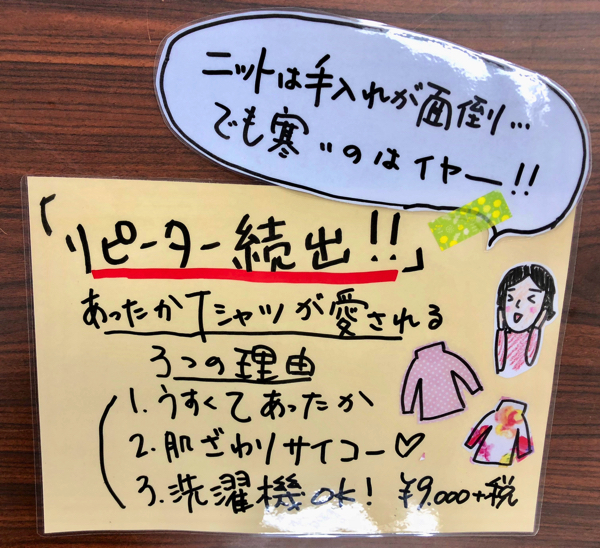 ニットは手入れが面倒…
でも寒いのはイヤー!!
「リピーター続出!!」
あったかTシャツが愛される
3つの理由
1.うすくてあったか
2.肌ざわりサイコー♡
3.洗濯機OK! ¥9.000+税